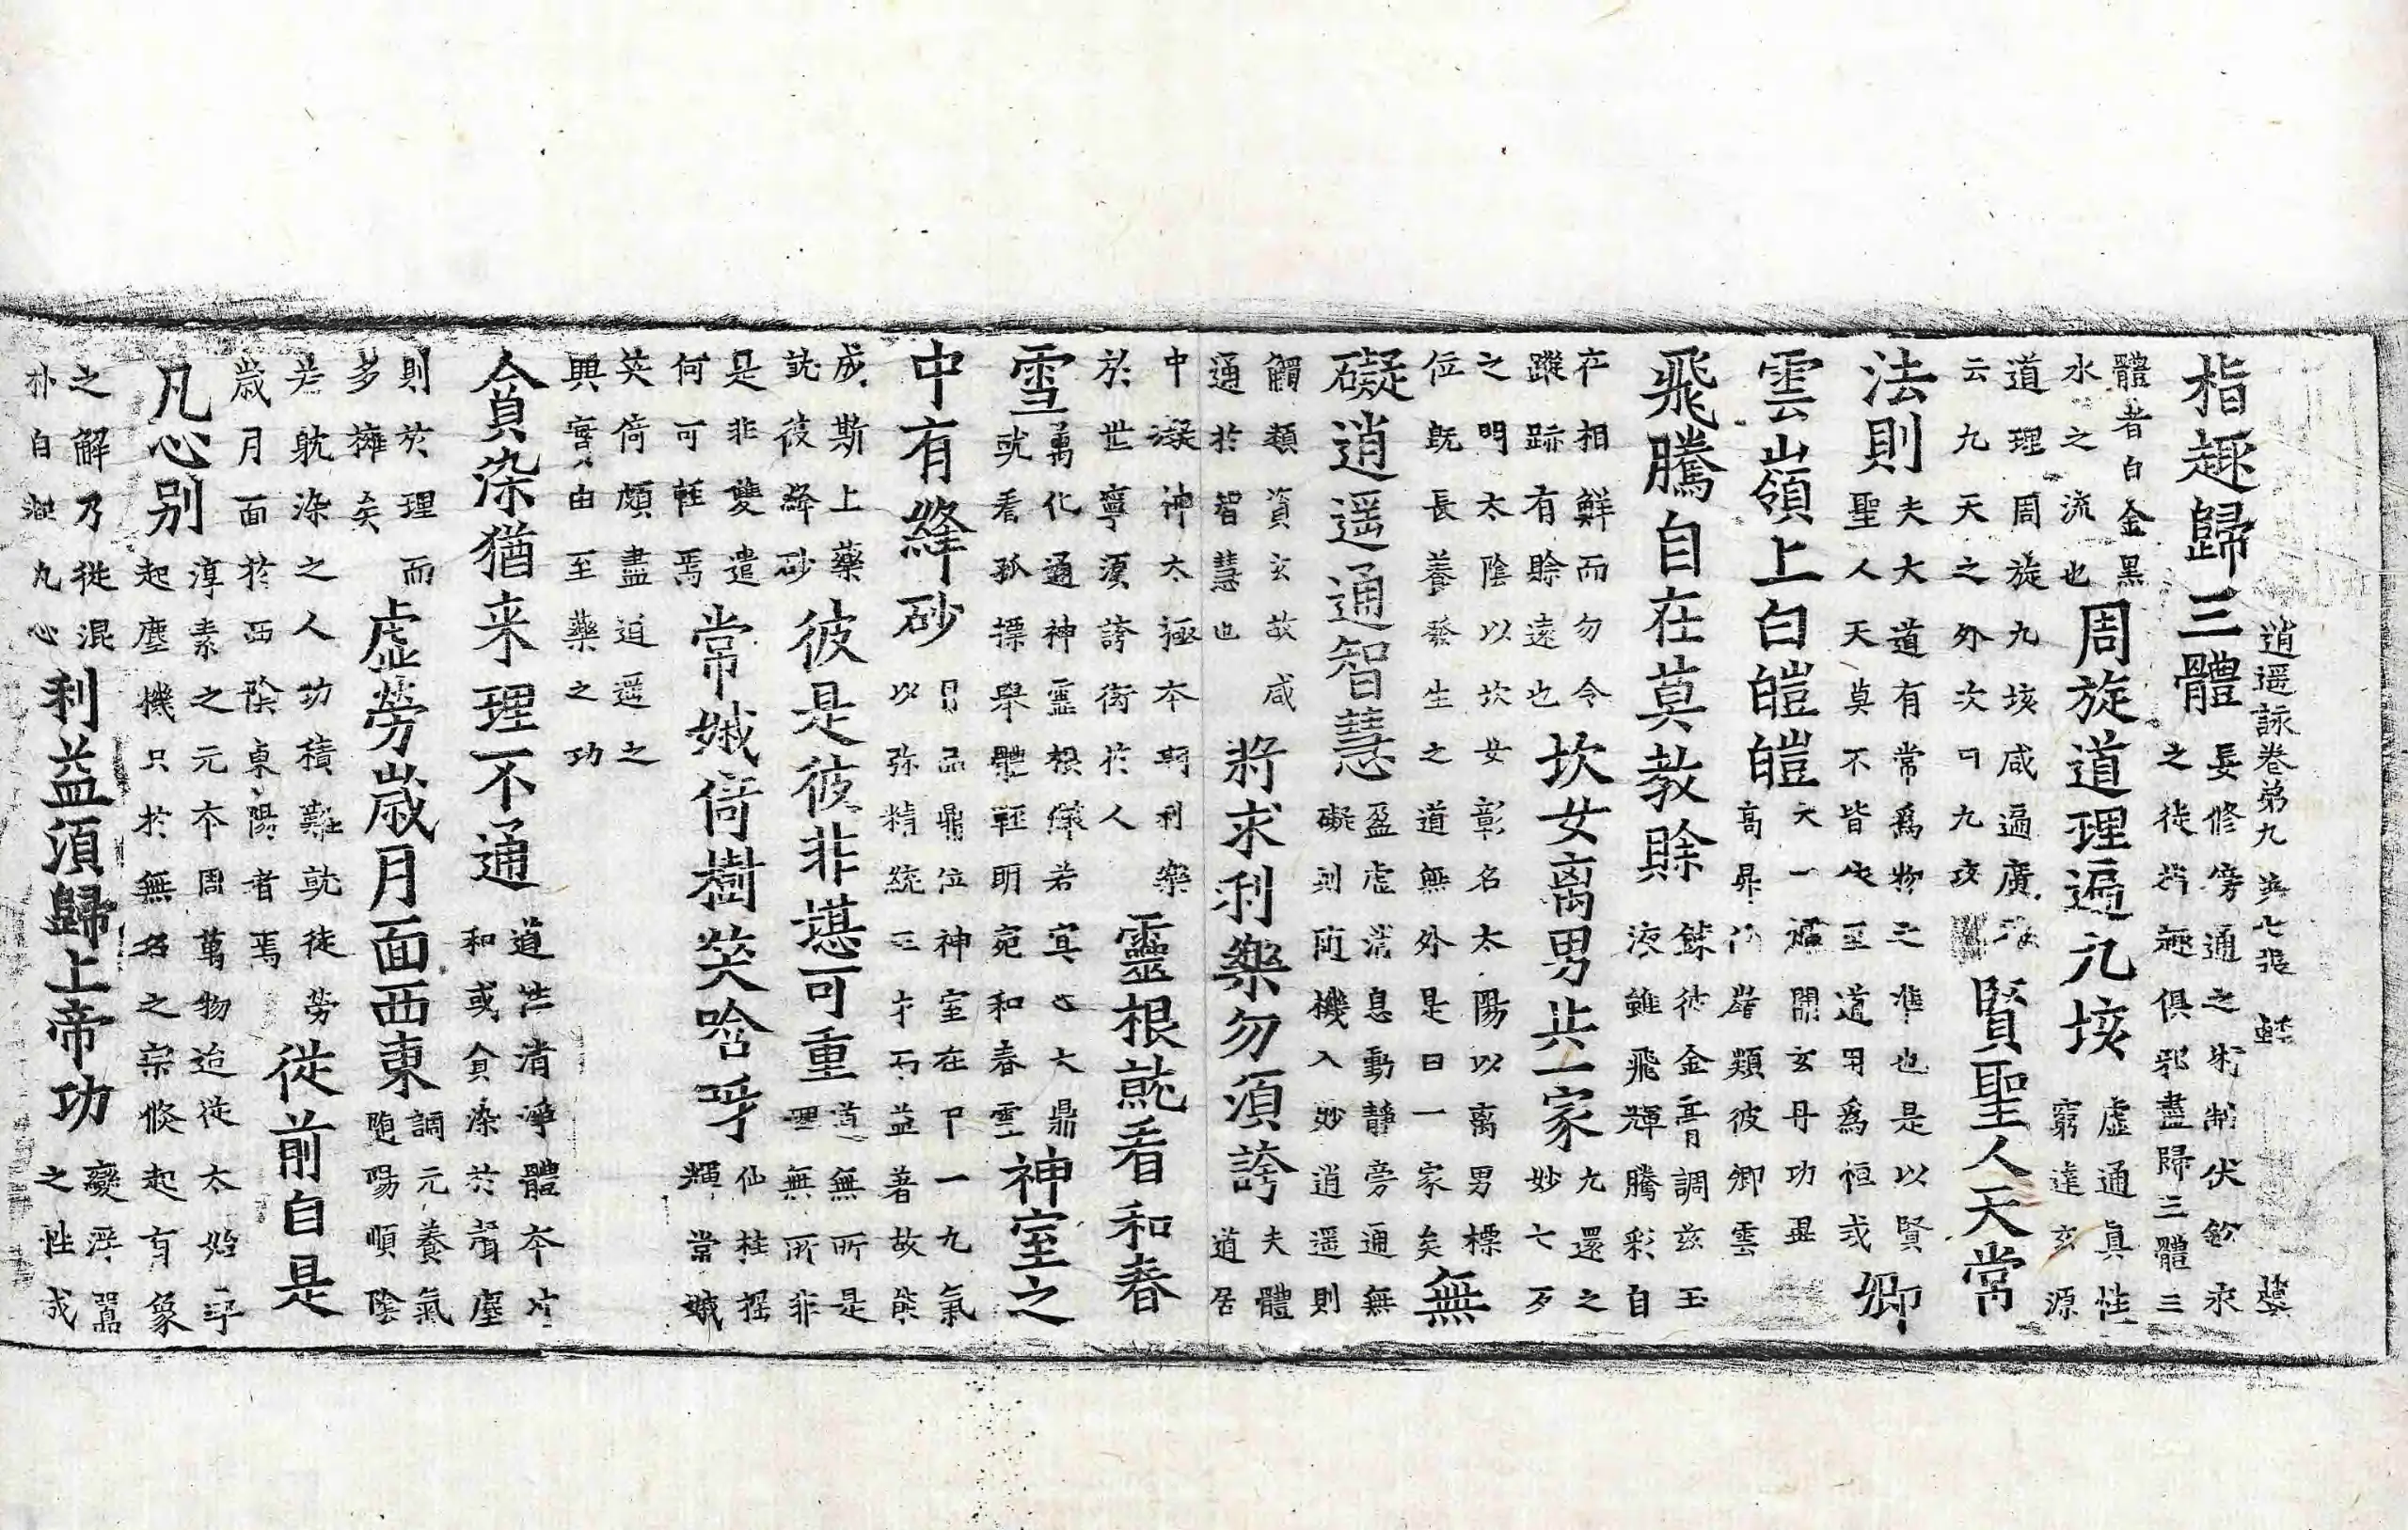 逍遥詠卷第九 第七張
指趣歸三體
修傍通之術制伏鈆汞
之徒㫖趣俱邪盡歸三體三
體者白金黑
水之流也
周旋道理遍九垓
虛通真性
窮達玄源
道理周旋九垓咸遍廣雅
云九天之外次曰九垓
賢聖人天常
法則
夫大道有常爲物之準也是以賢
聖人天莫不皆從至道用爲恒式
卿
雲嶺上白皚皚
天一壇開玄丹功畢
高昇仙階類彼卿雲
飛騰自在莫教賒
鍊彼金膏調兹玉
液雖飛輝騰彩自
在相鮮而勿令
蹤跡有賒遠也
坎女离男共一家
九還之
妙七
之明太陰以坎女彰名太陽以离男標
位旣長養發生之道無外是曰一家矣
無
礙逍遥通智慧
盈虛消息動靜旁通無
礙則随機入妙逍遥則
觸類資玄故咸
通於智慧也
將求利樂勿須誇
夫體
道居
中凝神太極夲期利樂
於世寧湏誇衒於人
靈根就看和春
雪
萬化通神靈根若宜心大鼎
就看孤摽舉體輕明宛和春雪
神室之
中有絳砂
品鼎位神室在中一九氣
以弥精統三才而益著故能
成斯上藥
就彼絳砂
彼是彼非堪可重
道無所是
理無所非
是非雙遣
何可輕焉
常娥倚樹笑唅呀
仙桂摇
輝常娥
笑倚頗盡逍遥之
興實由至藥之功
貪染猶来理不通
道性清淨體夲冲
和或貪染於聲塵
則於理而
多擁矣
虛勞歲月面西東
調元養氣
随陽順陰
若躭染之人功積難就徒勞
歲月面於西陰東陽者焉
從前自是
凡心别
淳素之元夲周萬物迨從太始乎
起塵機只於無名之宗倏起有象
之解乃從混
朴自九心
利益須歸上帝功
變浮嚚
之性成